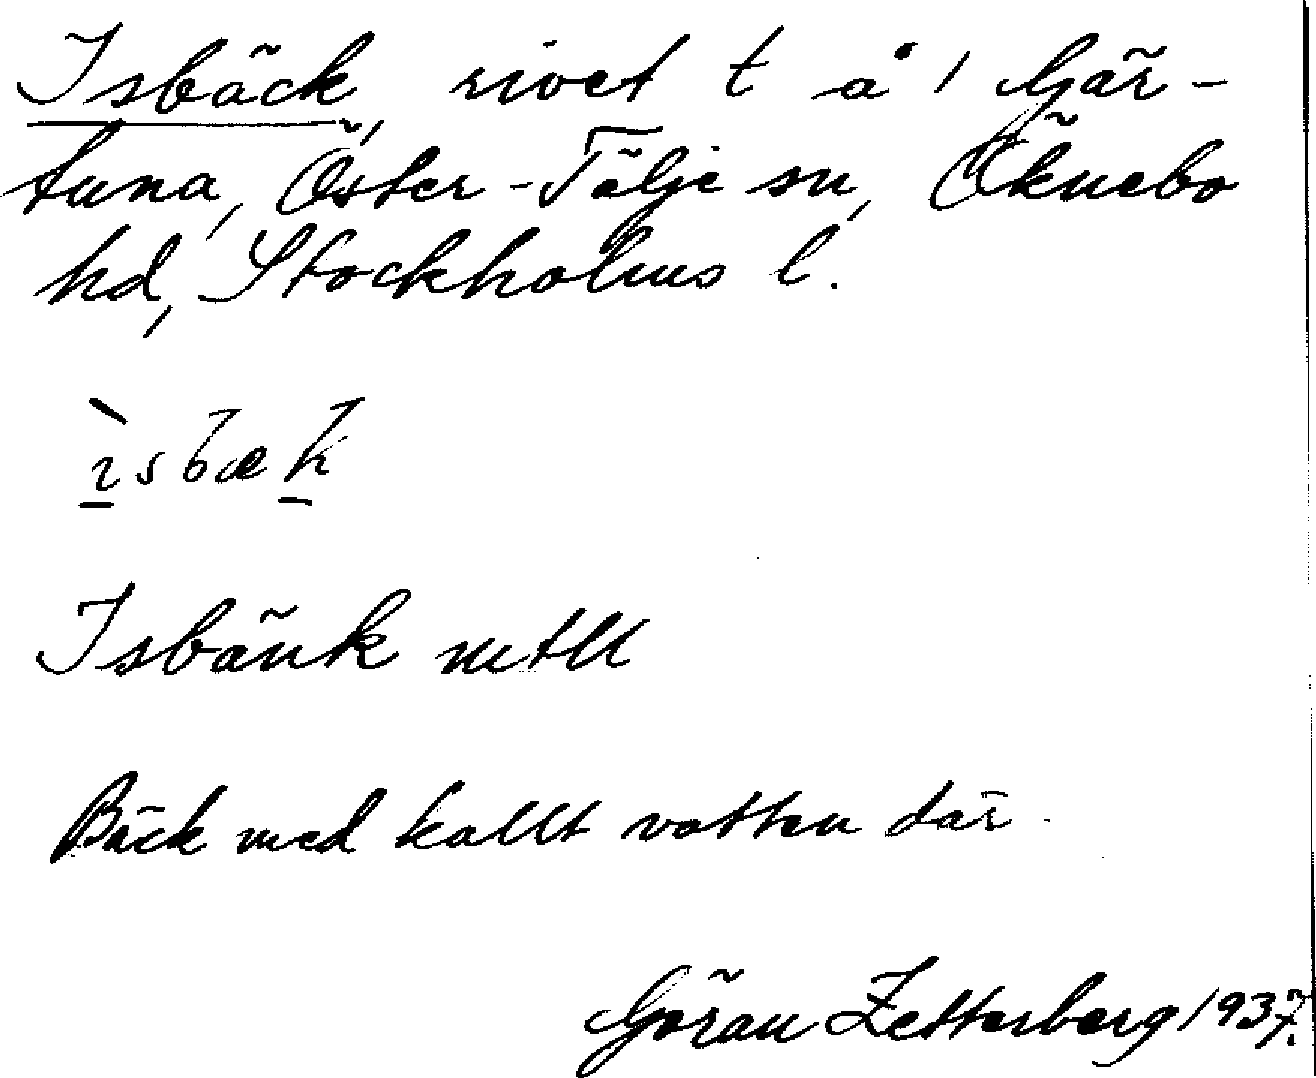 Isbäck, rivet t å i Gär-
tuna, Öster-Tälje sn, Öknebo
hd, Stockholms l.
ìsbæk
Isbänk mtll
Bäck med kallt vatten där.
Göran Zetterberg 1937.